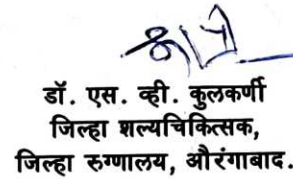 डॉ. एस. व्ही. कुलकर्णी
जिल्हा शल्यचिकित्सक,
जिल्हा रुग्णालय, औरंगाबाद.